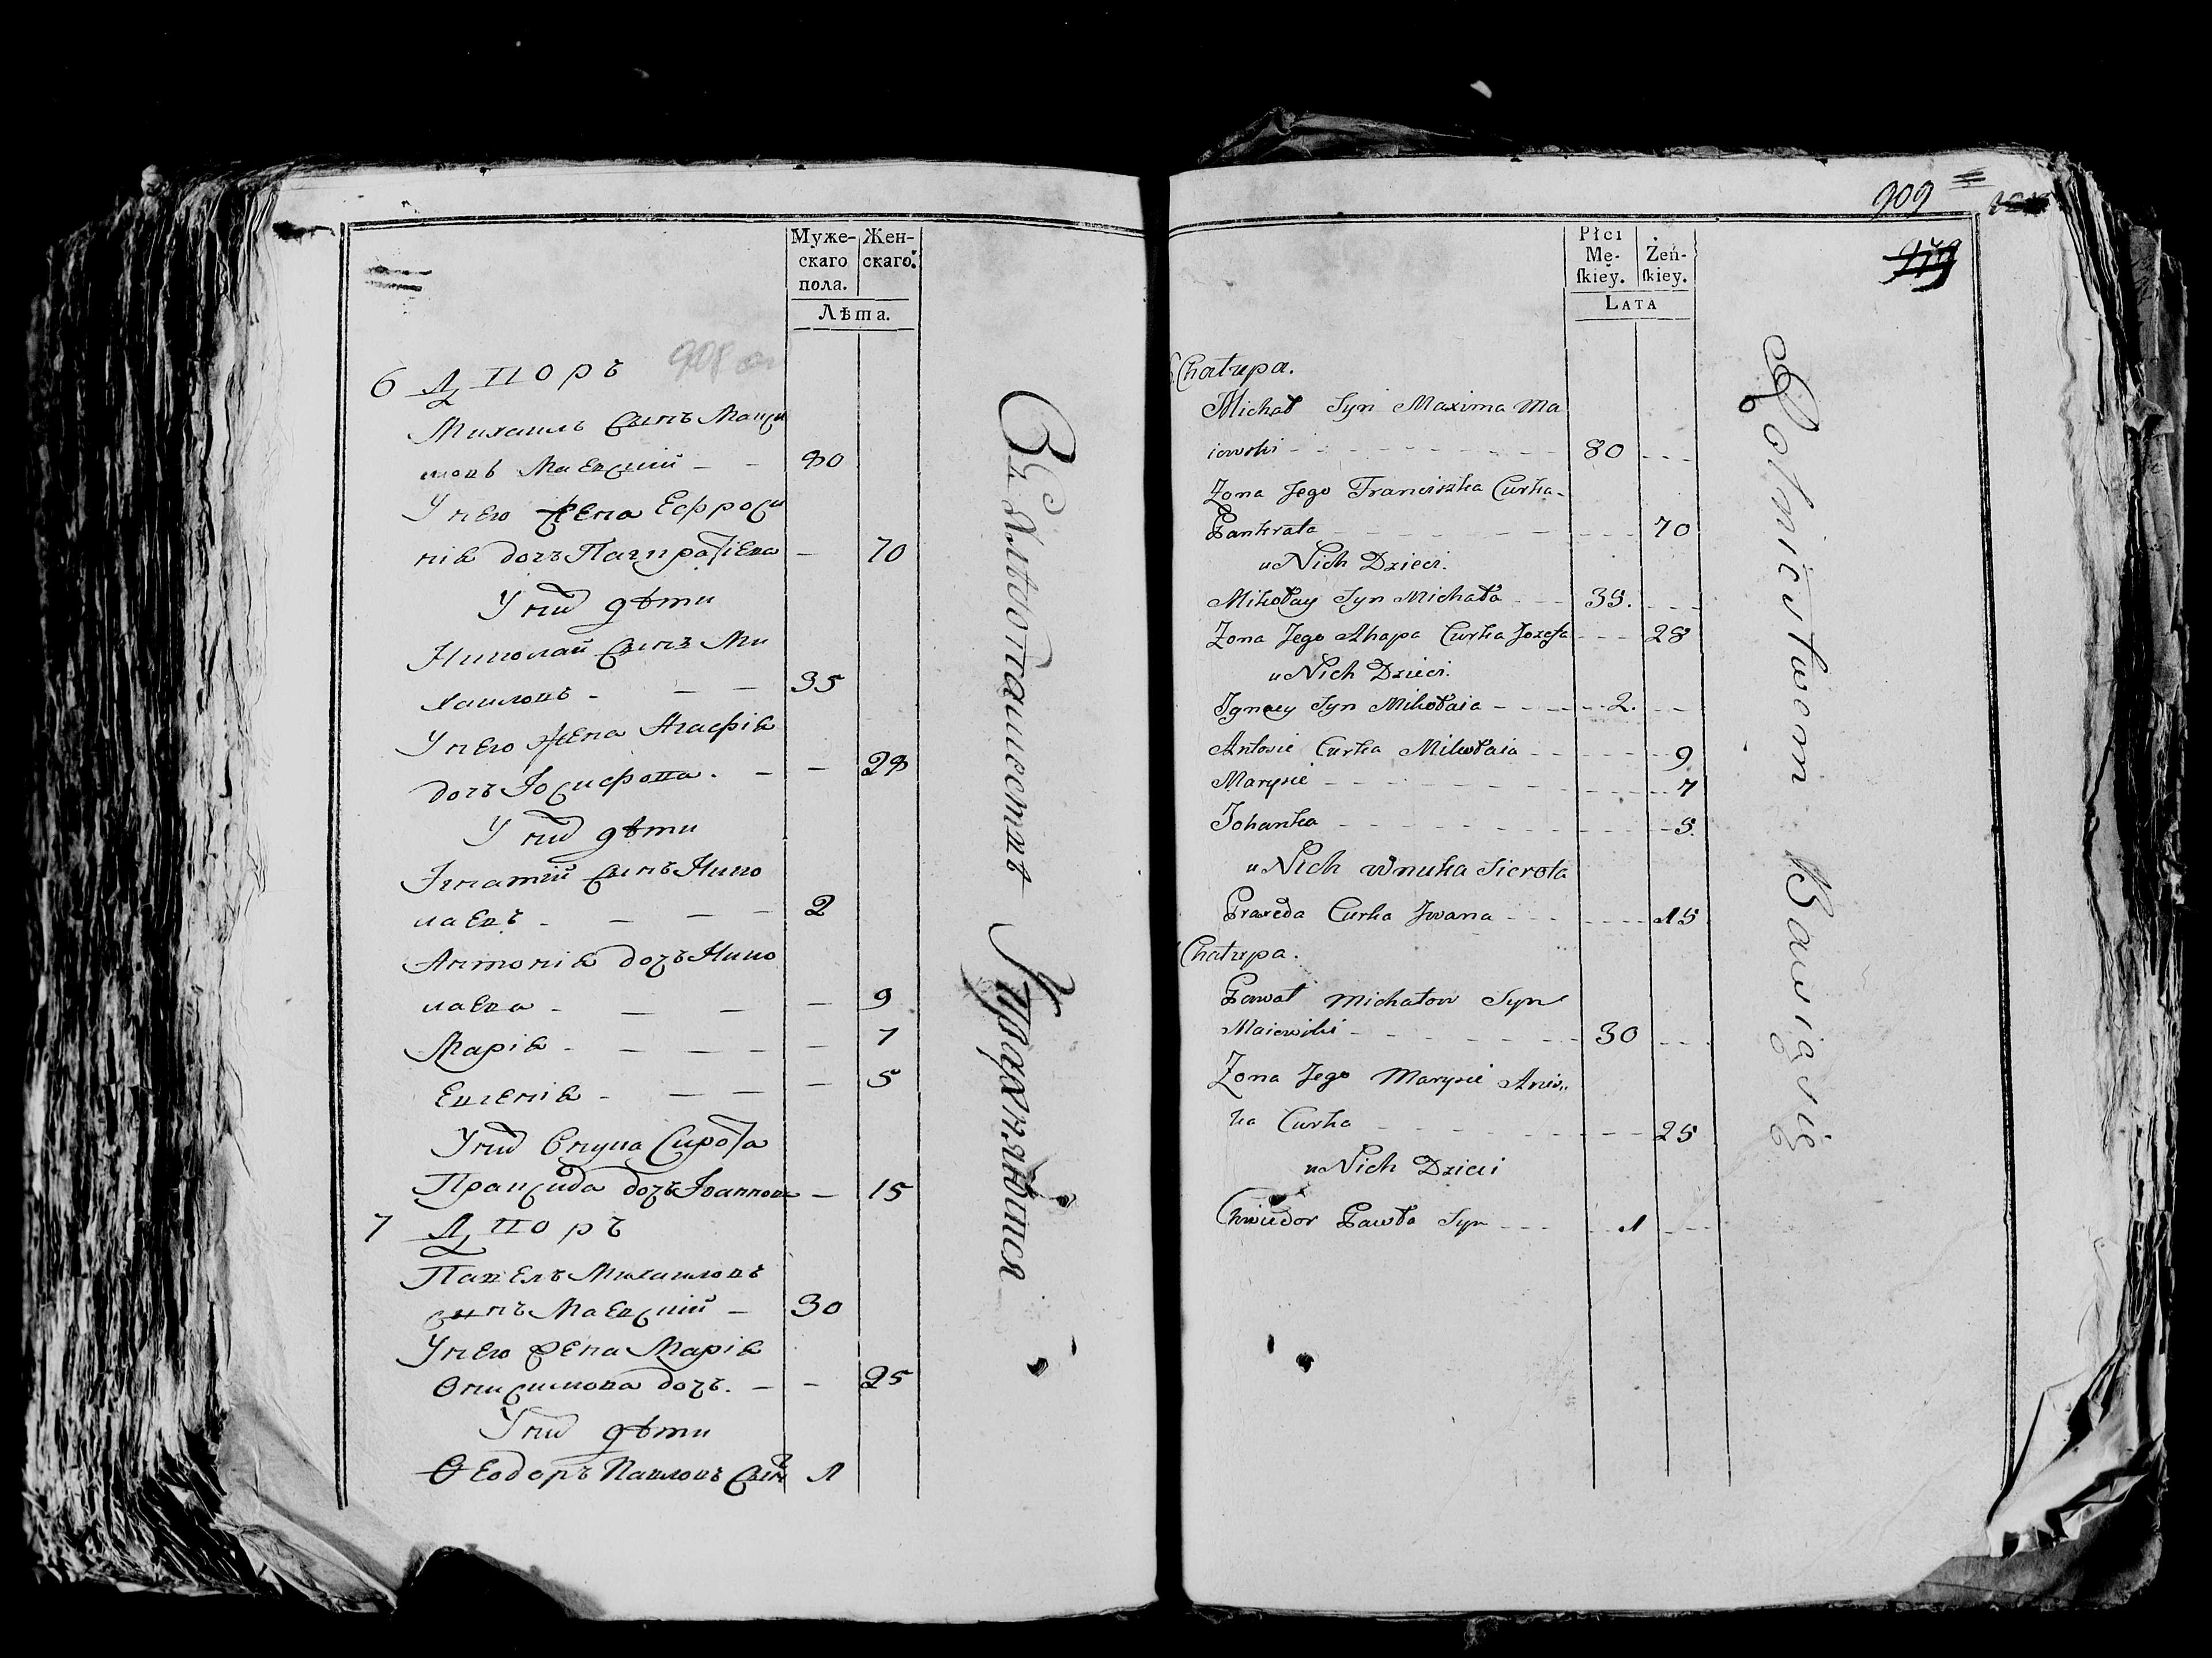 Муже-
скаго
пола.
Жен-
скаго.
Лѣта.
908 об
6 Дворъ
Михаилъ сынъ Макси
мовъ Маевский – – 80
У него жена Ефроси
нія дочъ Панкратіева – 70
У них дѣти
Николай сынъ Ми
хаиловъ – – – 35
У него жена Агафія
дочъ Іосифова. – – 28
У них дѣти
Игнатій сынъ Нико
лаевъ – – – – 2
Антонія дочъ Нико
лаева – – – – 9
Марія – – – – – 7
Евгенія – – – – 5
У них внука сирота
Праксида дочъ Іоаннова – 15
7 Дворъ
Павелъ Михаиловъ
сынъ Маевский – 30
У него жена Марія
Онисимова дочъ. – – 25
У них дѣти
Ѳеодоръ Павловъ сынъ 1
Хлѣбопашествомъ Упражняются
909
Płci
Mę-
ſkiey.
Żeń-
ſkiey.
LATA
Chałupa.
Michał Syn Maxima Ma
iewski - - - 80 - - -
Żona Jego Franciszka Curka
Pankrata - - - 70
u Nich Dzieci.
Mikołay Syn Michała - - - 35. - - -
Zona Jego Ahapa Curka Jozefa - - - 28
u Nich Dzieci.
Jgnacy Syn Mikołaia - - - 2. - -
Antosie Curka Mikołaia - - - 9
Marysie - - - 7
Johanka - - - 5.
u Nich wnuka Sierota
Praxeda Curka Jwana - - - 15
Chałupa.
Paweł Michałow Syn
Maiewski - - - 30 - - -
Zona Jego Marysie Anis..
ka Curka - - - 25
u Nich Dzieci
Chwiedor Pawła Syn - - - 1 - -
Rolnictwem Bawią się